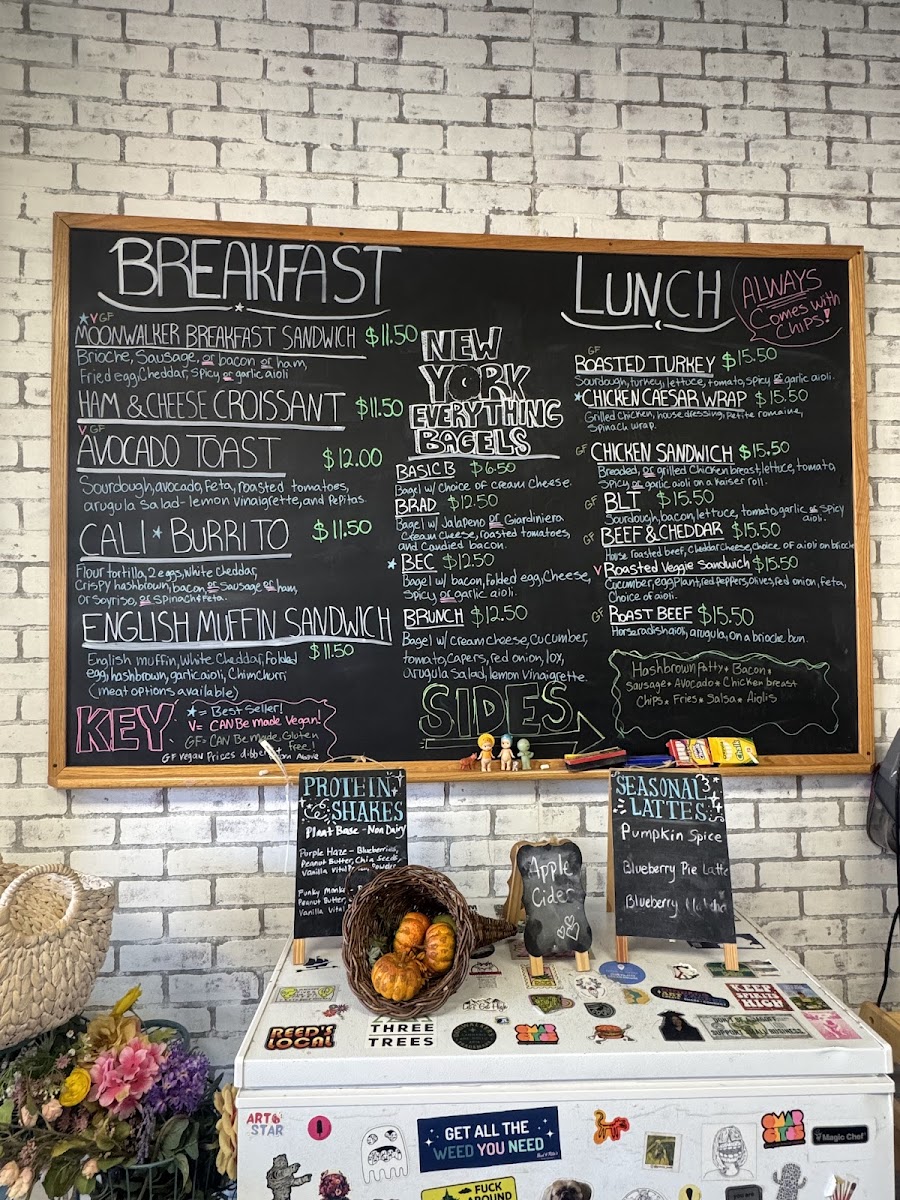 BREAKFAST
★ V GF
MOONWALKER BREAKFAST SANDWICH $11.50
Brioche, Sausage, or bacon or ham,
Fried egg, Cheddar, Spicy or garlic aioli
HAM & CHEESE CROISSANT $11.50
V GF
AVOCADO TOAST $12.00
Sourdough, avocado, Feta, roasted tomatoes,
arugula Salad - lemon vinaigrette, and Pepitas.
CALI ★ BURRITO $11.50
Flour tortilla, 2 eggs, White Cheddar,
Crispy hashbrown, bacon, or Sausage or ham,
Or Soyriso, or Spinach & Feta.
ENGLISH MUFFIN SANDWICH
$11.50
English muffin, White Cheddar, Folded
egg, hashbrown, garlic aioli, Chimchurri
(meat options available)
KEY
★ = Best Seller!
V = CAN Be made Vegan!
GF = CAN Be made Gluten
free!
NEW
YORK
EVERYTHING
BAGELS
BASIC B $6.50
Bagel w/ Choice of cream Cheese.
BRAD $12.50
Bagel w/ Jalapeno or Giardiniero
Cream Cheese, roasted tomatoes,
and Candied bacon.
★ BEC $12.50
Bagel w/ bacon, Folded egg, Cheese,
Spicy or garlic aioli.
BRUNCH $12.50
Bagel w/ Cream Cheese, cucumber,
tomato, capers, red onion, lox,
arugula Salad, lemon Vinaigrette.
SIDES
LUNCH
ALWAYS
Comes with
CHIPS!
GF
ROASTED TURKEY $15.50
Sourdough, turkey, lettuce, tomato, Spicy or garlic aioli.
★ CHICKEN CAESAR WRAP $15.50
Grilled Chicken, house dressing, Petite romaine,
Spinach wrap.
GF CHICKEN SANDWICH $15.50
Breaded, or grilled Chicken breast, lettuce, tomato
Spicy or garlic aioli on a Kaiser roll.
GF BLT $15.50
Sourdough, bacon, lettuce, tomato, garlic or spicy
aioli.
GF BEEF & CHEDDAR $15.50
House roasted beef, Cheddar Cheese, choice of aioli on brioche
V Roasted Veggie Sandwich $15.50
Cucumber, eggplant, red peppers, Olives, red onion, Feta,
Choice of aioli.
GF ROAST BEEF $15.50
Horseradish aioli, arugula, on a brioche bun.
Hashbrown Patty ★ Bacon ★
Sausage ★ Avocado ★ Chicken breast
Chips ★ Fries ★ Salsa ★ Aiolis
PROTEIN
SHAKES
Plant Base - Non Dairy
Purple Haze - Blueberries,
Peanut Butter, Chia Seeds,
Vanilla
Funky Monkey
Peanut Butter,
Vanilla
Apple
Cider
SEASONAL
LATTES
Pumpkin Spice
Blueberry Pie Latte
Blueberry Matcha
REED'S
LOCAL
THREE
TREES
KEEP
SPIRITS
HIGH
SUPPORT SMALL BUSINESS
ART
STAR
GET ALL THE
WEED YOU NEED
FUCK
AROUND
Magic Chef